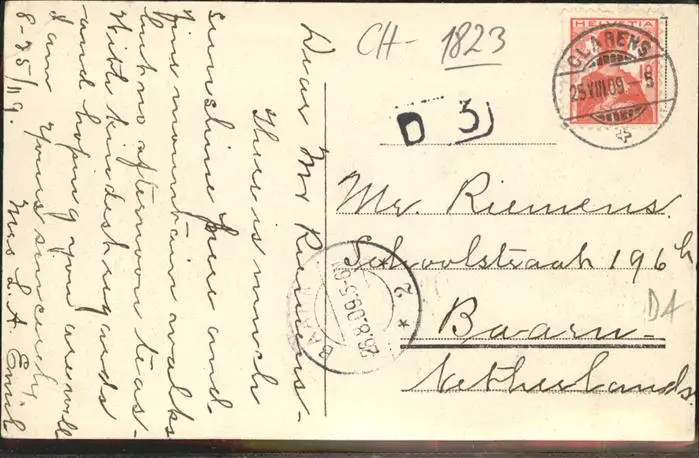 Dear Mr Riemens-
There is much
sunshine here and
fine mountain walks
but no afternoon teas-
With kindest regards
and hoping you are well
I am yours sincerely,
Mrs L. A.
8-25/09.
CH- 1823
HELVETIA
10
CLARENS
25.VIII.09.-5
D 3
Mr. Riemens.
Schoolstraat 196h
Baarn-
Netherlands.
D4
BAARN
26.8.09.5-6N
2